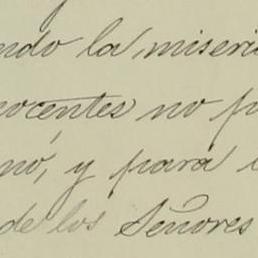 ndo la miseri
nocentes no p
nó, y para
de los Señores